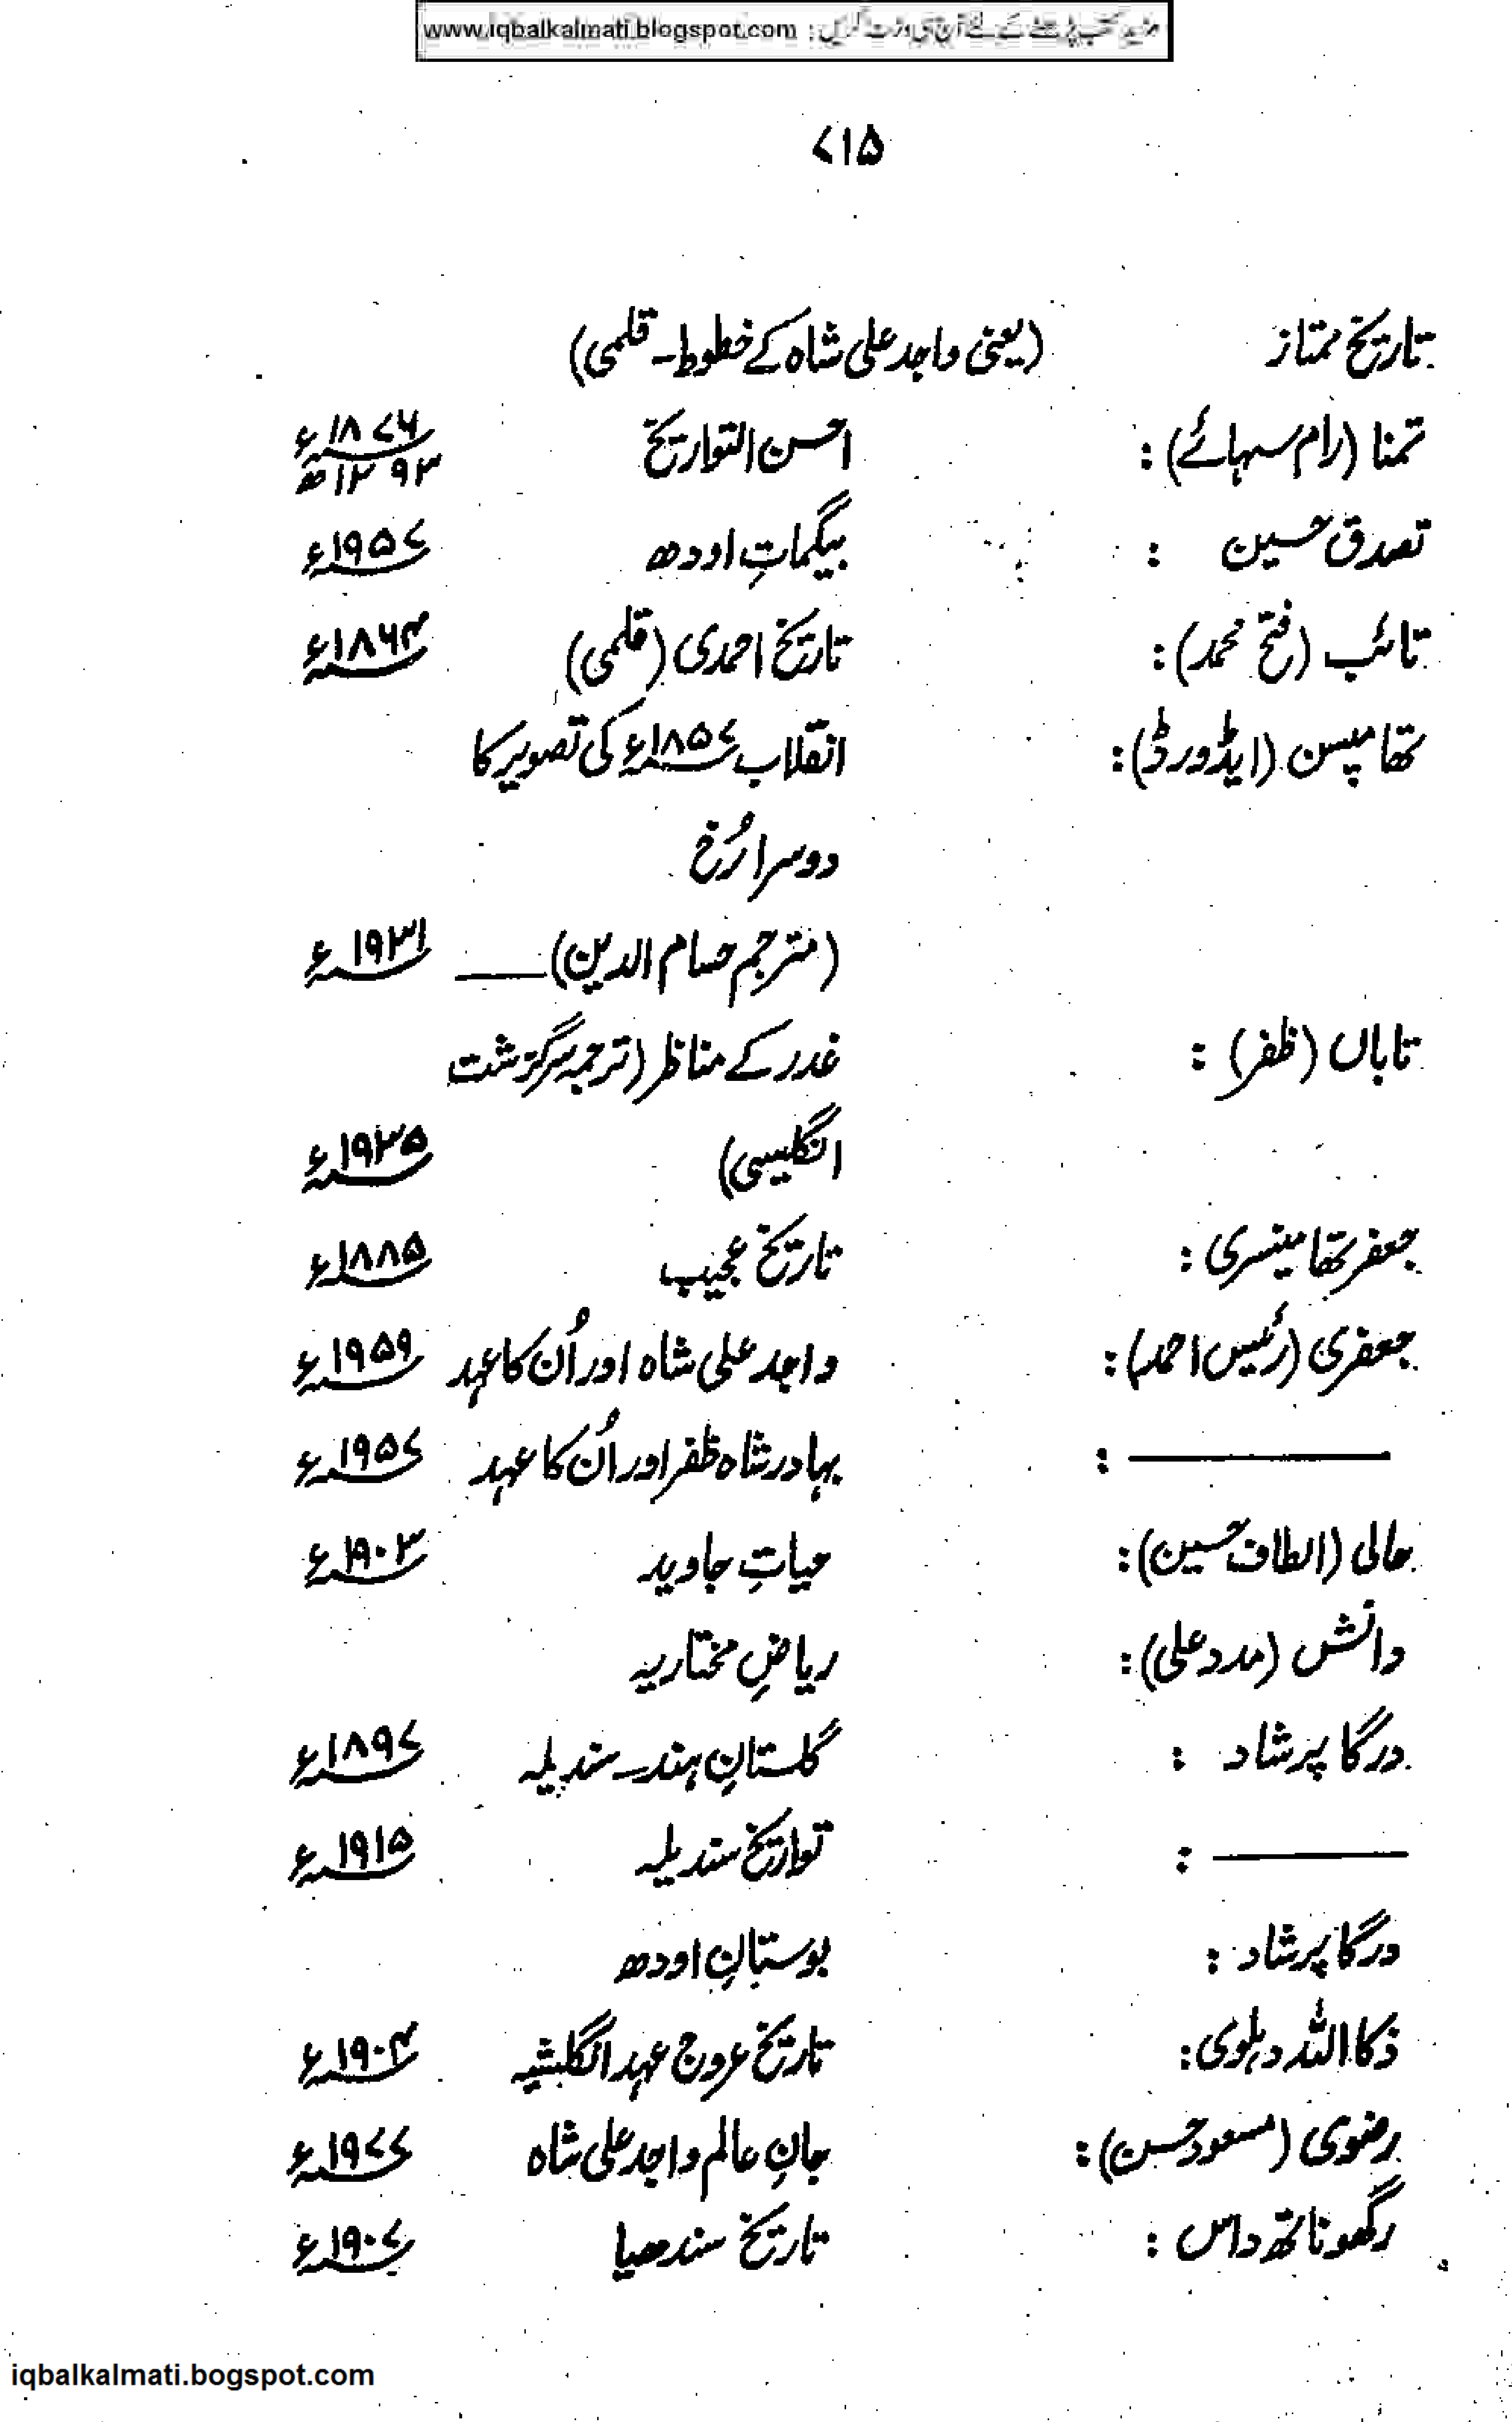 مزید کتب پڑھنے کے لئے آج ہی وزٹ کریں : www.iqbalkalmati.blogspot.com
۷۱۵
تاریخ ممتاز (یعنی واجد علی شاہ کے خطوط۔ قلمی)
تمنا (رام سہائے): احسن التواریخ ۱۸۷۶ء
۱۲۹۳ھ
تصدق حسین : بیگماتِ اودھ ۱۹۵۷ء
تائب (فتح محمد): تاریخ احمدی (قلمی) ۱۸۶۴ء
تھامپسن (ایڈورڈ): انقلاب ۱۸۵۷ء کی تصویر کا
دوسرا رُخ
(مترجم حسام الدین) ۱۹۳۱ء
تاباں (ظفر) : غدر کے مناظر (ترجمہ سرگزشت
انگلیسی) ۱۹۳۵ء
جعفر تھانیسری : تاریخ عجیب ۱۸۸۵ء
جعفری (رئیس احمد): واجد علی شاہ اور اُن کا عہد ۱۹۵۹ء
——— : بہادر شاہ ظفر اور اُن کا عہد ۱۹۵۷ء
حالی (الطاف حسین): حیاتِ جاوید ۱۹۰۲ء
دانش (مدد علی): ریاضِ مختاریہ
درگا پرشاد : گلستانِ ہند۔ سندیلہ ۱۸۹۷ء
——— : تواریخ سندیلہ ۱۹۱۵ء
درگا پرشاد : بوستانِ اودھ
ذکا اللہ دہلوی: تاریخ عروج عہد انگلشیہ ۱۹۰۴ء
رضوی (مسعود حسن): جانِ عالم واجد علی شاہ ۱۹۷۷ء
رگھوناتھ داس : تاریخ سندھیا ۱۹۰۷ء
iqbalkalmati.bogspot.com